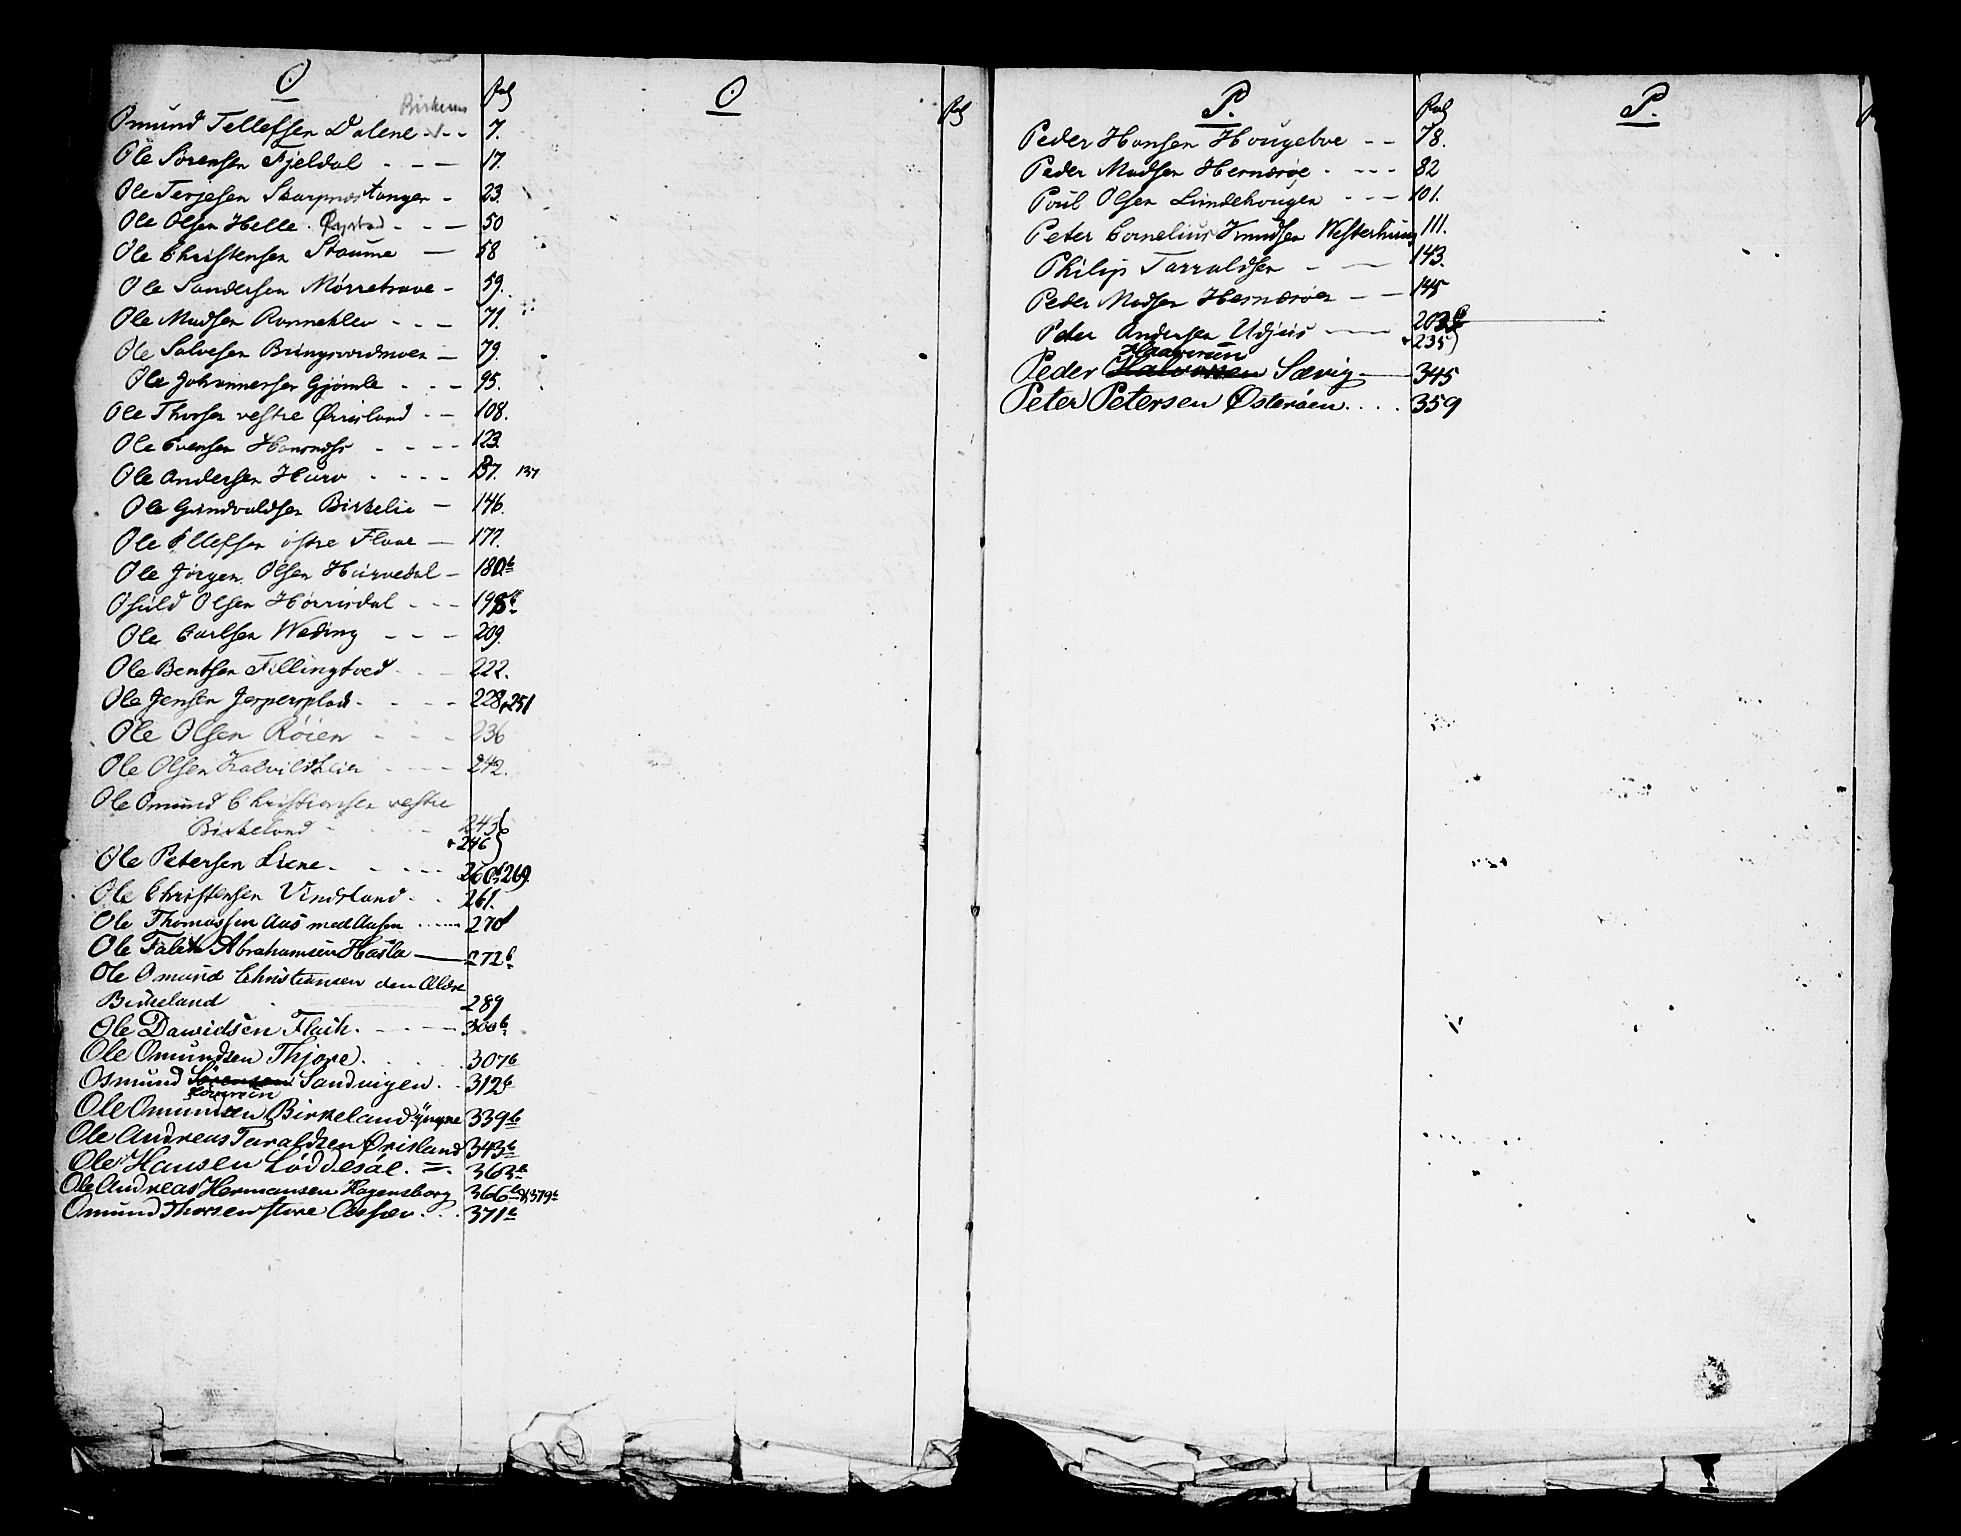 O
Fol
Omund Tellefsen Dalene 7.
Ole Sørensen Fjeldal 17.
Ole Terjesen Skarpnæstangen 23.
Ole Olsen Helle 50
Ole Christensen Staume 58
Ole Sandersen Mørretrave 59.
Ole Madsen Ranneklev 71.
Ole Salvesen Bringsværdmoen 79.
Ole Johannessen Gjømle 95.
Ole Thorsen vestre Ørrisland 108.
Ole Evensen 123.
Ole Andersen Hura 137. 137
Ole Gundvaldsen Birkelie 146.
Ole Ellefsen østre Flaae 177.
Ole Jørgen Olsen Hürvedal 180b
Osuld Olsen Hørrisdal 198b
Ole Carlsen Weding 209.
Ole Bentsen Fillingtved 222.
Ole Jensen Jespersplads 228, 251
Ole Olsen Røien 236
Ole Olsen Kalvildheia 242.
Ole Omund Christiansen vestre
Birkeland 245
246
Ole Petersen Liene 260b 269
Ole Christensen Vindsland 261.
Ole Thomassen Aas med Aasen 270
Ole Falck Abrahamsen Hasla 272b
Ole Omund Christiansen den Ældre
Birkeland 289
Ole Davidsen Flach 300b
Ole Omundsen Thjore 307b
Osmund Sørensen Sandvigen 312b
Ole Omundsen Birkeland yngre 339b
Ole Andreas Taraldsen Ørisland 343b
Ole Hansen Løddesøl 363b
Ole Andreas Hermansen Hagensborg 366b & 379b
Omund Thorsen store 371b
O
Fol
P.
Fol
Peder Hansen Hougeboe 78.
Peder Madsen Hernærøe 82
Poul Olsen Lundehougen 101.
Peter Cornelius Knudsen 111.
Philip Tarraldsen 143.
Peder Madsen Hernærøen 145
Peter Andersen 203b
235
Haaversen
Peder Halvorsen Sævig 345
Peter Petersen Østerøen 359
P.